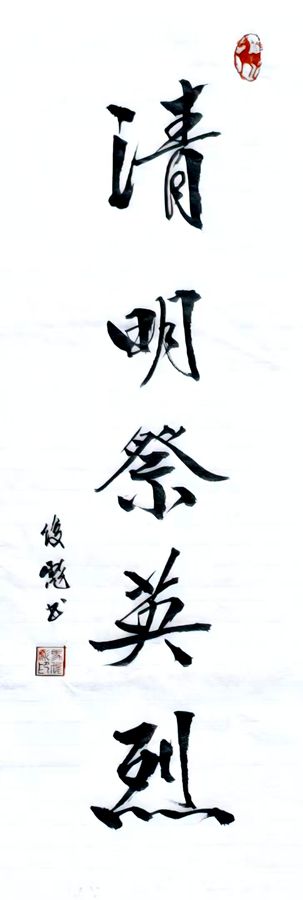 清明祭英烈
俊彪书